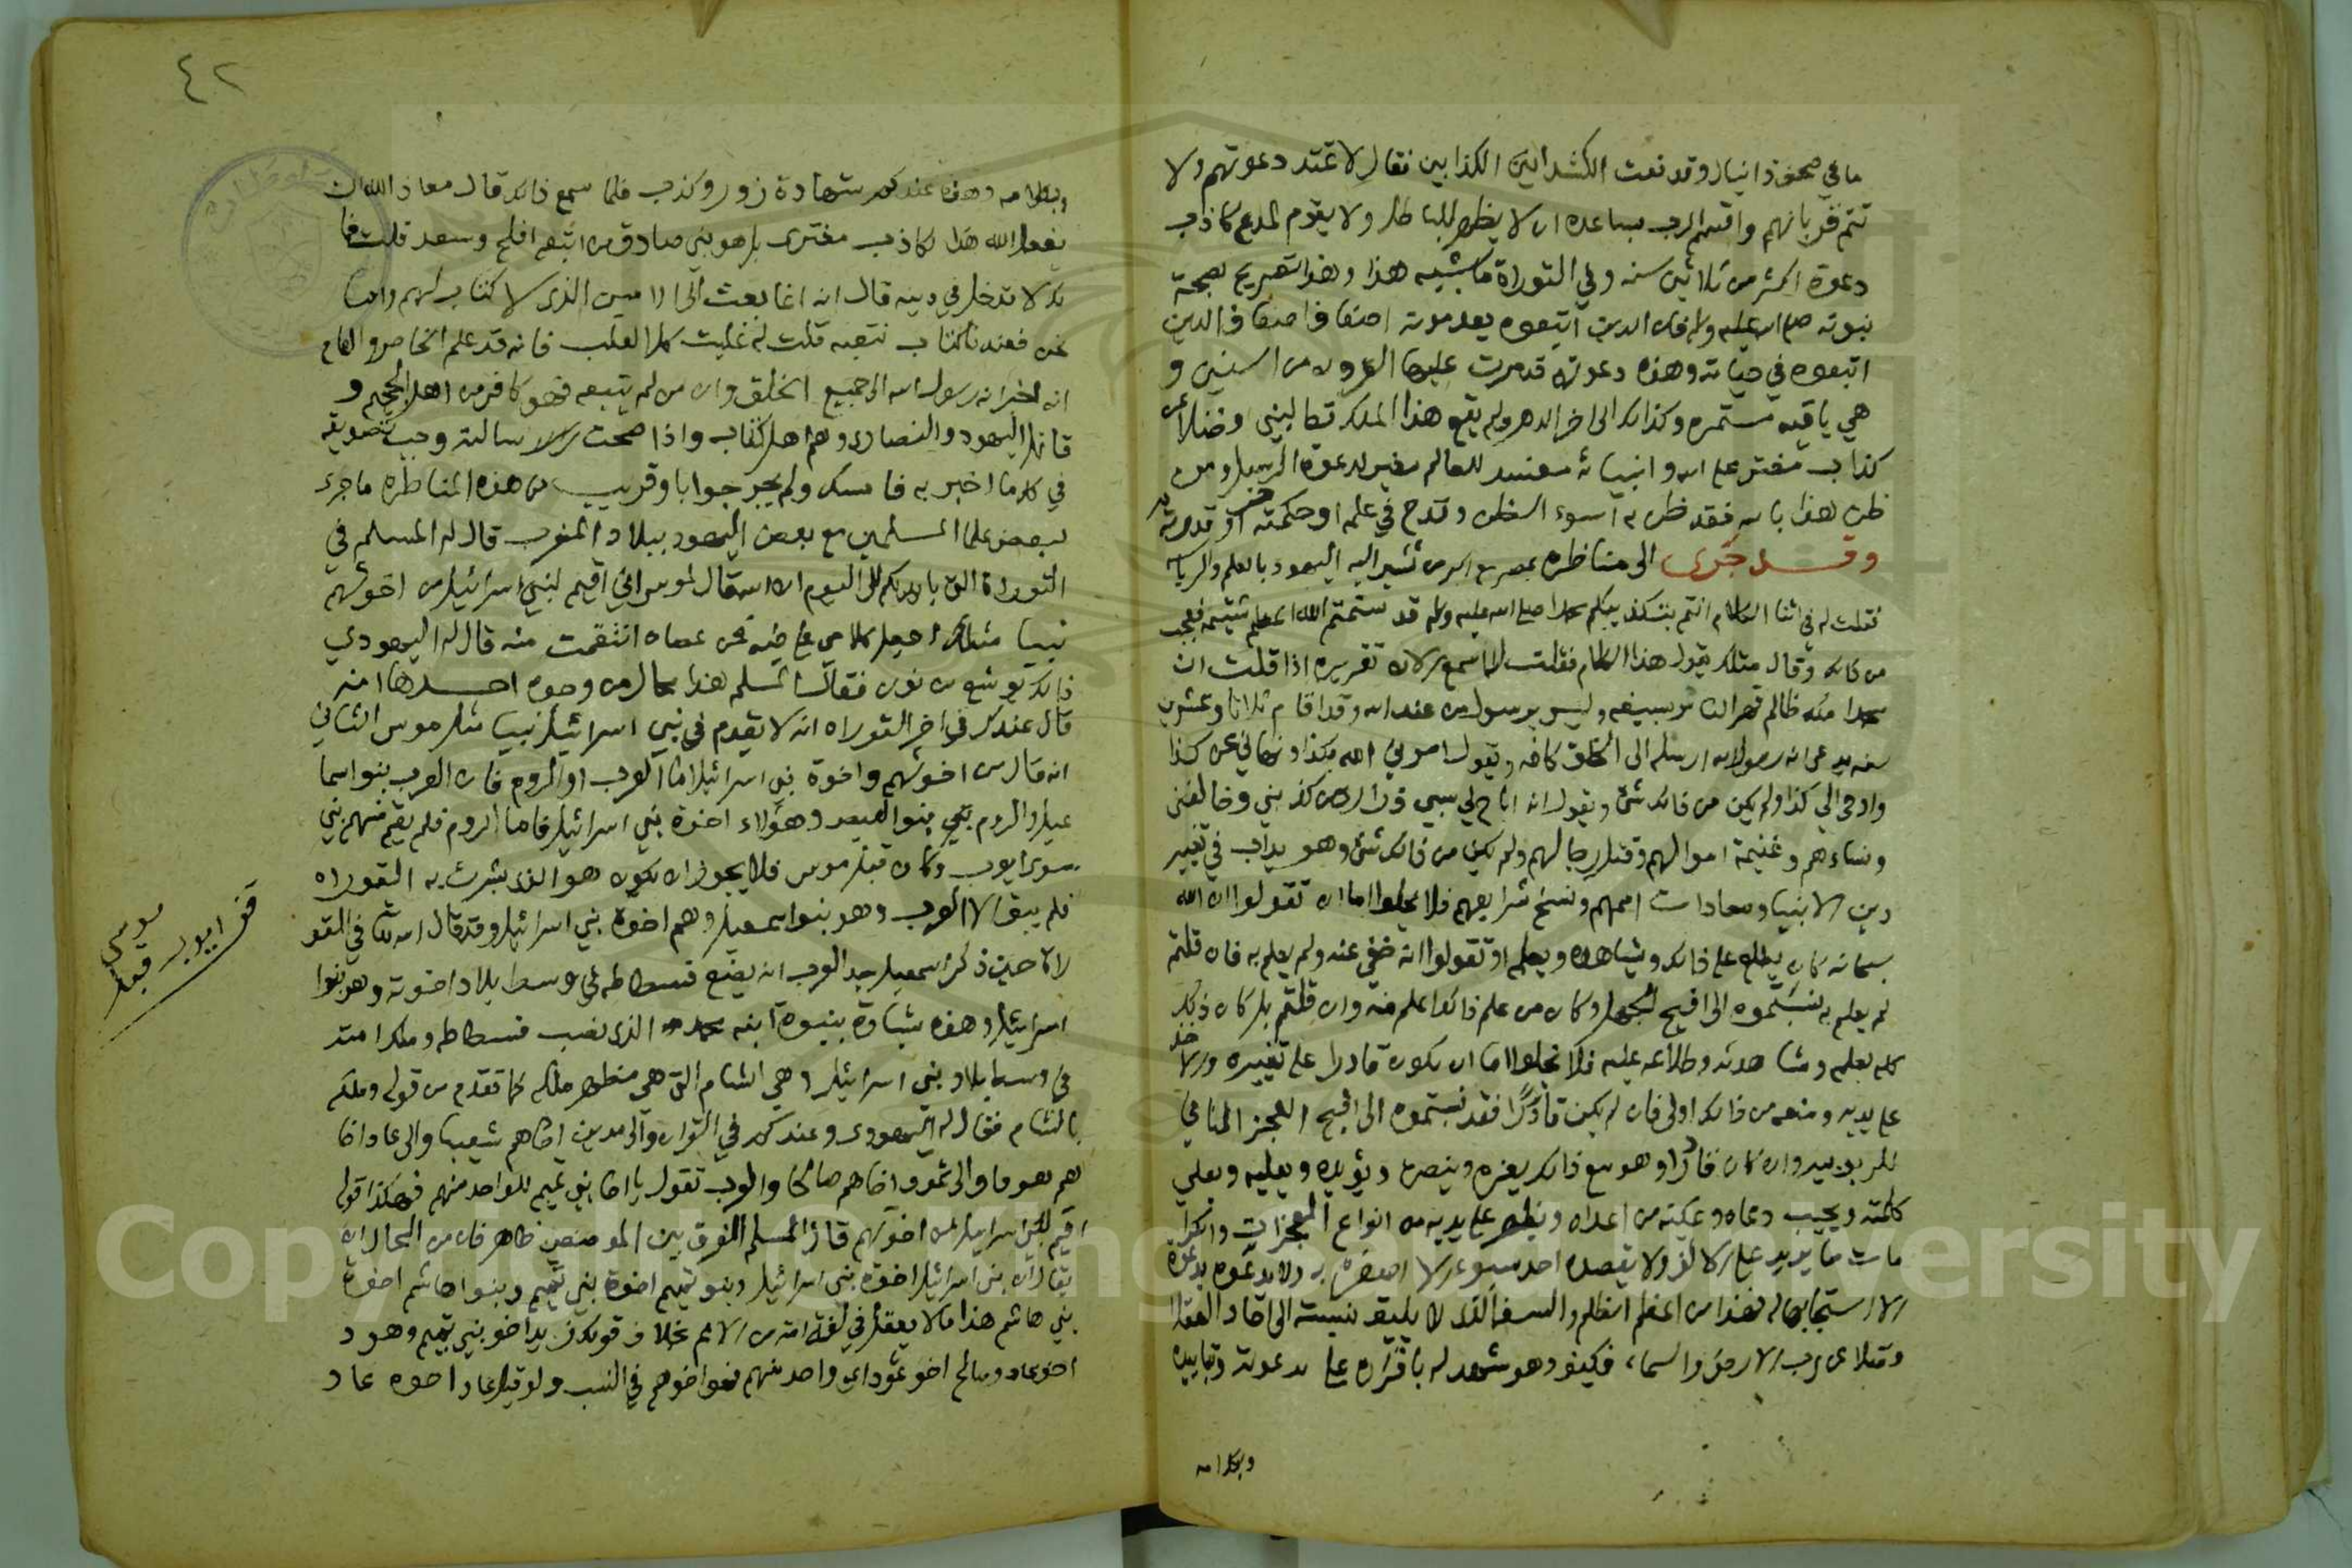 ما في صحف دانيال وقد نعت الكشدانيين الكذابين فقال لا تمتد دعوتهم ولا
تتم قرباتهم واقسم الرب بساعده ان لا يظهر الباطل ولا يقوم لمدع كاذب
دعوة اكثر من ثلاثين سنه وفي التوراة ما يشبه هذا وهذا تصريح بصحة
نبوته صلى الله عليه وسلم فان الذين اتبعوه بعد موته اضعاف اضعاف الذين
اتبعوه في حياته وهذه دعوته قد مرت عليها القرون من السنين و
هي باقيه مستمره وكذلك الى اخر الدهر ولم يقع هذا الملك قط لنبي وفضلا عن
كذاب مفتر على الله وانبيائه مفسد للعالم مغير لدعوة الرسل ومن
ظن هذا بالله فقد ظن به اسوء الظن وقدح في علمه او حكمته او قدرته
وقد جرى لي مناظره بمصر مع اكبر من تشير اليه اليهود بالعلم والرياسه
فقلت له في اثنا الكلام انتم بتكذيبكم محمدا صلى الله عليه وسلم قد شتمتم الله اعظم شتيمه فعجب
من ذلك وقال مثلك يقول هذا الكلام فقلت له اسمع الان تقريره اذا قلت ان
محمدا ملك ظالم قهر الناس بسيفه وليس برسول من عند الله وقد اقام ثلاثا وعشرين
سنه يدعى انه رسول الله ارسله الى الخلق كافه ويقول امرني الله بكذا ونهاني عن كذا
واوحى الي كذا ولم يكن من ذلك شئ ويقول انه اباح لي سبي ذراري من كذبني وخالفني
ونساءهم وغنيمة اموالهم وقتل رجالهم ولم يكن من ذلك شئ وهو يداب في تغيير
دين الانبيا ومعادات اممهم ونسخ شرايعهم فلا يخلوا اما ان تقولوا ان الله
سبحانه كان يطلع على ذلك ويشاهده ويعلمه او تقولوا انه خفي عنه ولم يعلم به فان قلتم
لم يعلم به نسبتموه الى اقبح الجهل وكان من علم ذلك اعلم منه وان قلتم بل كان ذلك
كله بعلمه ومشاهدته واطلاعه عليه فلا يخلوا اما ان يكون قادرا على تغييره والاخذ
على يديه ومنعه من ذلك اولى فان لم يكن قادرا فقد نسبتموه الى اقبح العجز المنافي
للربوبيه وان كان قادرا وهو مع ذلك يعزه وينصره ويؤيده ويعليه ويعلي
كلمته ويجيب دعاه ويمكنه من اعدائه ويظهر على يديه من انواع المعجزات والكرا
مات ما يزيد على الالف ولا يقصده احد بسوء الا اظفره به ولا يدعوه بدعوة
الا استجابها له فهذا من اعظم الظلم والسفه الذي لا يليق نسبته الى احاد العقلا
وفضلا عن رب الارض والسماء فكيف وهو يشهد له باقراره على دعوته وتاييده
وبكلامه
٤٢
وبكلامه وهذه عندكم شهادة زور وكذب فلما سمع ذلك قال معاذ الله ان
يفعل الله هذا بكاذب مفترى بل هو نبي صادق من اتبعه افلح وسعد قلت فما
لك لا تدخل في دينه قال انه انما بعث الى الاميين الذي لا كتاب لهم واما
نحن فعندنا كتاب نتبعه قلت له غلبت كل الغلب فانه قد علم الخاص والعام
انه اخبر انه رسول الله الى جميع الخلق وان من لم يتبعه فهو كافر من اهل الجحيم و
قاتل اليهود والنصارى وهم اهل كتاب واذا صحت رسالته وجب تصديقه
في كل ما اخبر به فامسك ولم يحر جوابا وقريب من هذه المناظره ما جرى
لبعض علما المسلمين مع بعض اليهود ببلاد المغرب قال له المسلم في
التوراة التي بايديكم الى اليوم ان الله قال لموسى اني اقيم لبني اسرائيل من اخوتهم
نبيا مثلك اجعل كلامي على فيه فمن عصاه انتقمت منه قال له اليهودي
ذلك يوشع بن نون فقال المسلم هذا محال من وجوه احدها انه
قال عندك في اخر التوراه انه لا يقوم في بني اسرائيل نبيا مثل موسى الثاني
انه قال من اخوتهم واخوة بني اسرائيل اما العرب او الروم فان العرب بنوا اسما
عيل والروم بني بنوا العيص وهؤلاء اخوة بني اسرائيل فاما الروم فلم يقم منهم نبي
سوى ايوب وكان قبل موسى فلا يجوز ان يكون هو الذي بشرت به التوراه
فلم يبق الا العرب وهو بنوا اسمعيل وهم اخوة بني اسرائيل وقد قال الله تعالى في التو
راة حين ذكر اسمعيل جد العرب انه يضع فسطاطه في وسط بلاد اخوته وهم بنوا
اسرائيل وهذه بشارة بنبوة ابنه محمد الذي نصب فسطاطه وملك امته
في وسط بلاد بني اسرائيل وهي الشام التي هي مظهر ملكه كما تقدم من قوله وملكه
بالشام فقال له اليهودي وعندكم في القران والى مدين اخاهم شعيبا والى عاد اخا
هم هودا والى ثمود اخاهم صالحا والعرب تقول يا اخا بني تميم للواحد منهم فهكذا قوله
اقيم لبني اسرائيل من اخوتهم قال المسلم الفرق بين الموضعين ظاهر فان من المحال ان
يقال ان بني اسرائيل اخوة بني اسرائيل وبنو تميم اخوة بني تميم وبنوا هاشم اخوة
بني هاشم هذا ما لا يعقل في لغة امة من الامم بخلاف قولك زيد اخو بني تميم وهود
اخو عاد وصالح اخو ثمود اي واحد منهم فهو اخوهم في النسب ولو قيل عاد اخوه عاد
قف ايوب قبل
موسى
Copyright © King Saud University